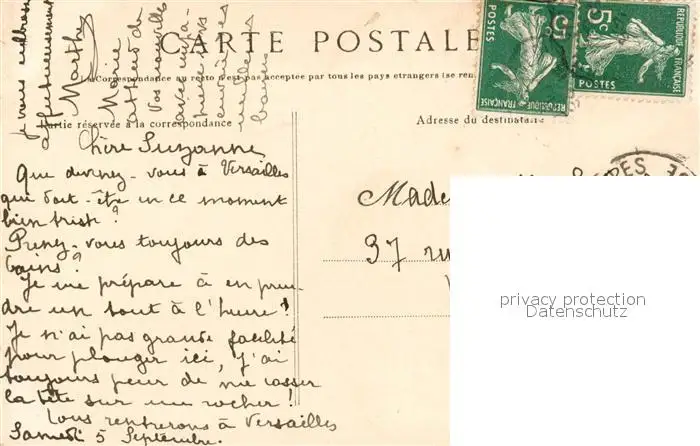 CARTE POSTALE
La Correspondance au recto n'est pas acceptée par tous les pays etrangers (se ren
Partie réservée à la correspondance
Adresse du destinataire
5c
POSTES
REPUBLIQUE FRANÇAISE
5c
POSTES
REPUBLIQUE FRANÇAISE
Chère Suzanne
Que devenez-vous à Versailles
qui doit-être en ce moment
bien triste?
Prenez-vous toujours des
bains?
Je me prépare à en pren-
dre un tout à l'heure!
Je n'ai pas grande facilité
pour plonger ici, j'ai
toujours peur de me casser
la tête sur un rocher!
Nous rentrerons à Versailles
Samedi 5 Septembre.
Je vous embrasse
affectueusement
Marthe
Marie
attend de
vos nouvelles
avec impa-
Made
37 ru
privacy protection
Datenschutz